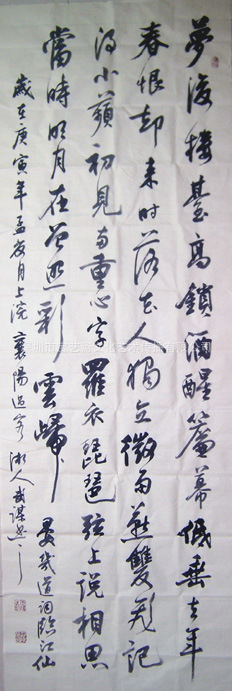 夢後樓臺高鎖酒醒簾幕低垂去年
春恨却来时落花人獨立微雨燕雙飛記
得小蘋初見兩重心字羅衣琵琶弦上說相思
當時明月在曾照彩雲歸 晏幾道詞臨江仙
歲在庚寅年孟夏月上浣 襄陽 湘人